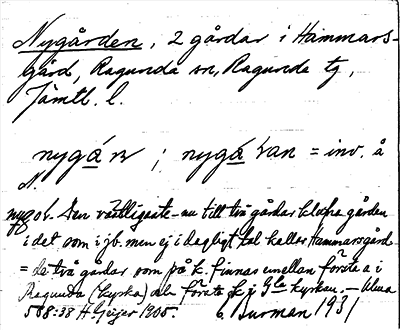 Nygården, 2 gårdar i Hammars-
gård, Ragunda sn, Ragunda tg,
Jämtl. l.
nygá n ; nygá van = inv. å
N.
nyg ob. Den västligaste – nu till två gårdar klufna gården
i det som i jb. men ej i dagligt tal kallas Hammarsgård.
= de två gårdar som på k. finnas emellan första a i
Ragunda (kyrka) och första k i Gla kyrkan. –
508:38 H. Geijer 1905. 6. Furman 1931